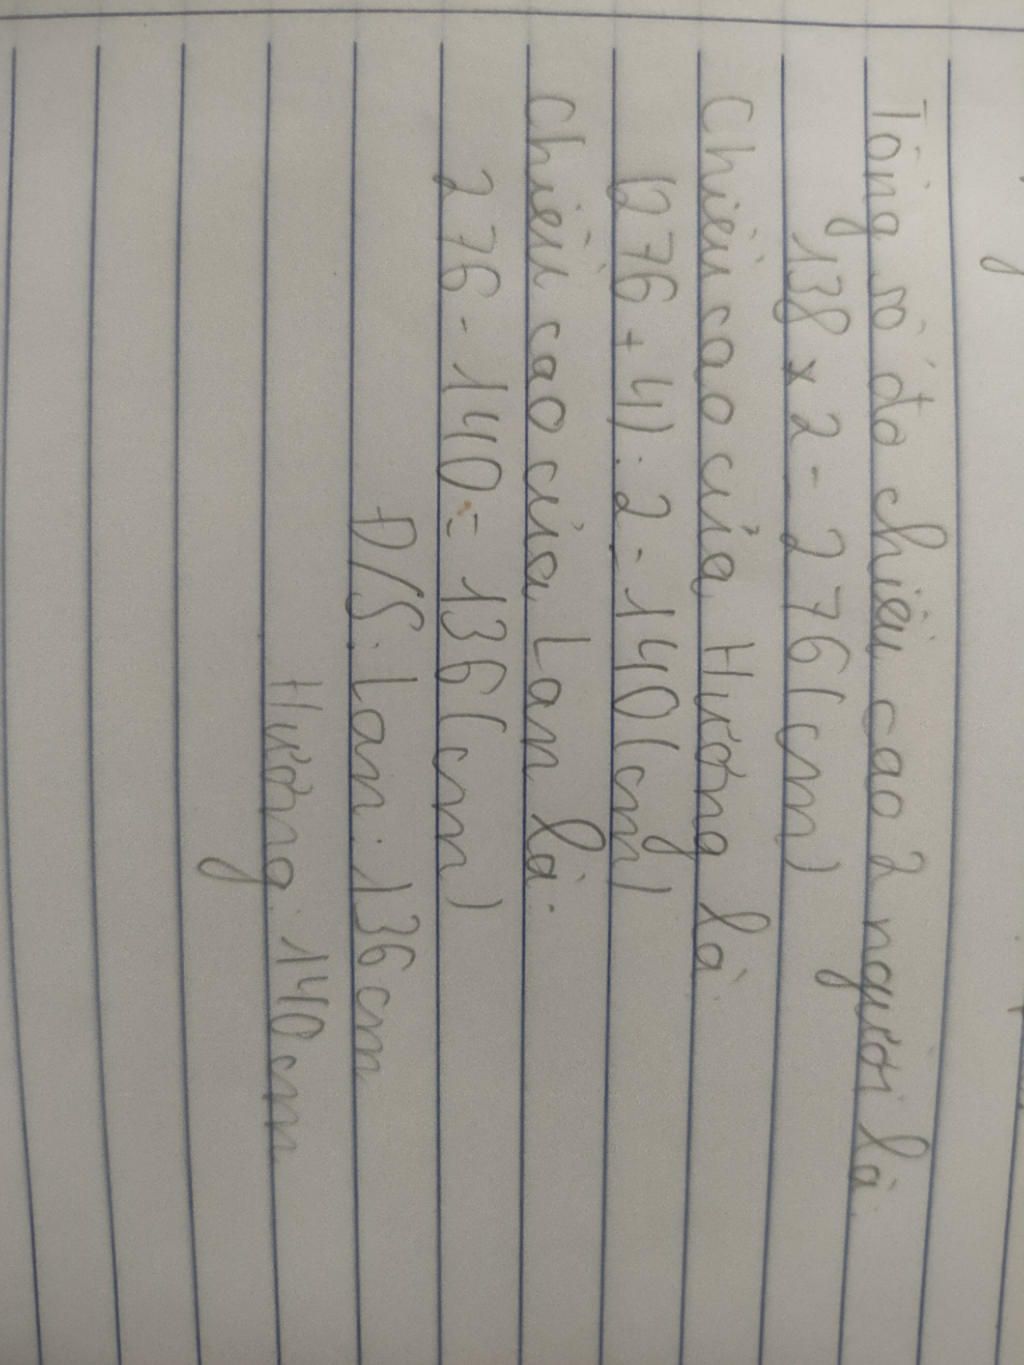 Tổng số đo chiều cao 2 người là:
138 x 2 = 276 (cm)
Chiều cao của Hường là:
(276 + 4) : 2 = 140 (cm)
Chiều cao của Lan là:
276 - 140 = 136 (cm)
Đ/S: Lan: 136 cm
Hường: 140 cm